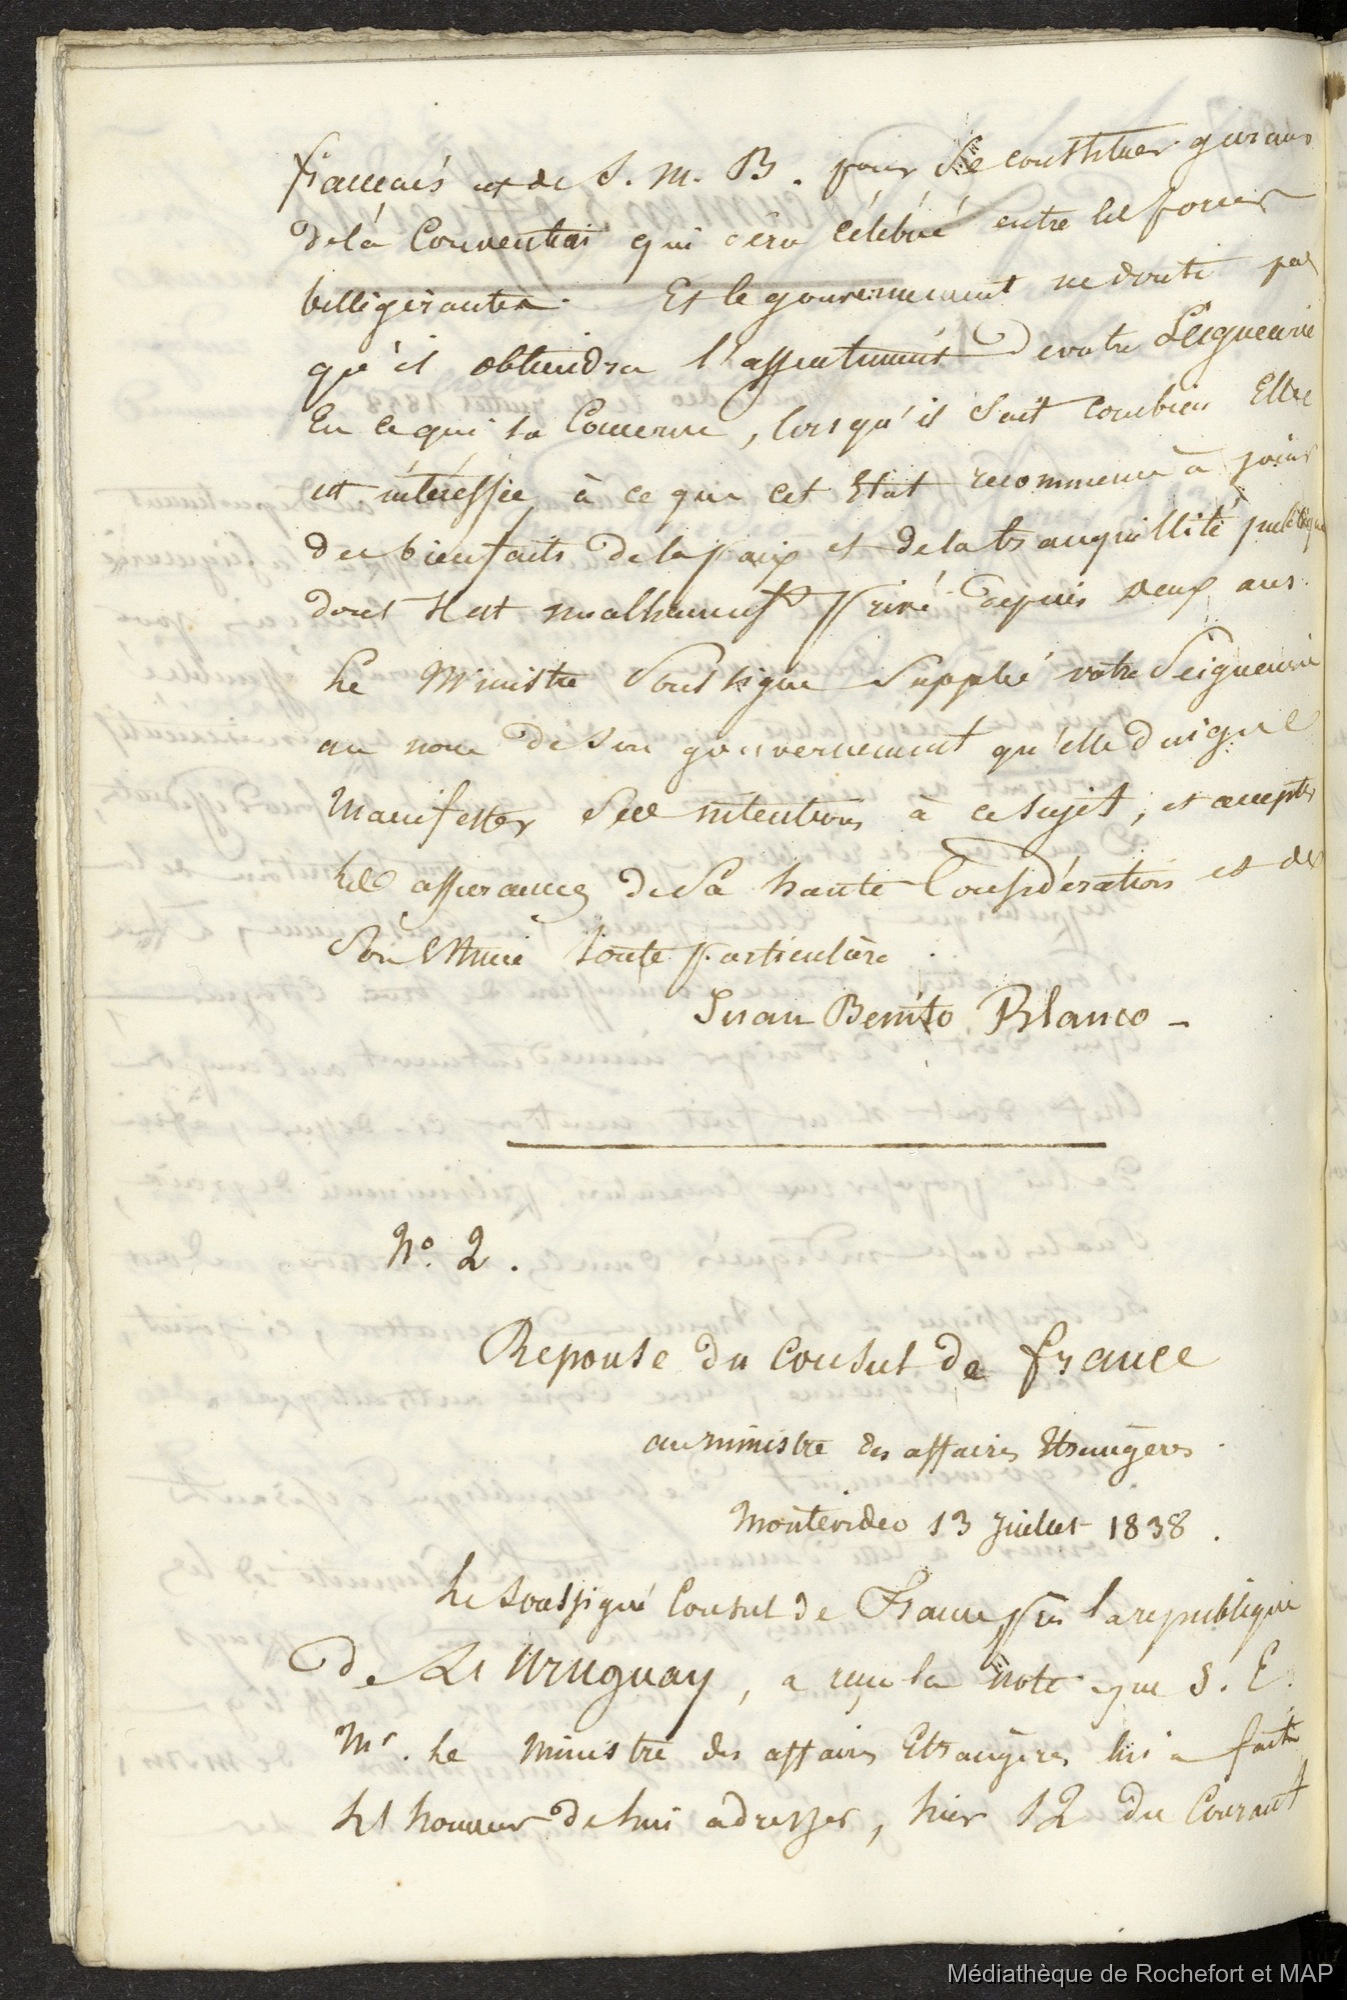 français et de S. M. B. pour se constituer garans
de la Convention qui sera célébré entre les forces
belligérantes. Et le gouvernement ne doute pas
qu'il obtiendra l'assentiment de votre Seigneurie
En ce qui la Concerne, lorsqu'il sait combien Elle
est intéressée à ce que cet Etat recommence à jouir
des bienfaits de la paix et de la tranquillité publique
dont il est malheureust privé depuis deux ans.
Le Ministre Soussigné Supplié votre Seigneurie
au nom de son gouvernement qu'elle daigne
Manifester Ses intentions à ce sujet, et accepter
les assurances de Sa haute Considération et de
Son Estime toute particulière.
Juan Benito Blanco -
No. 2.
Reponse du Consul de france
au ministre des affaires Etrangères.
Montevideo 13 juillet 1838.
Le soussigné Consul de France près la republique
de Ll Uruguay, a reçu la note que S. E.
Mr. Le Ministre des affaires Etrangères lui a fait
Ll honneur de lui adresser, hier 12 du Courant
Médiathèque de Rochefort et MAP